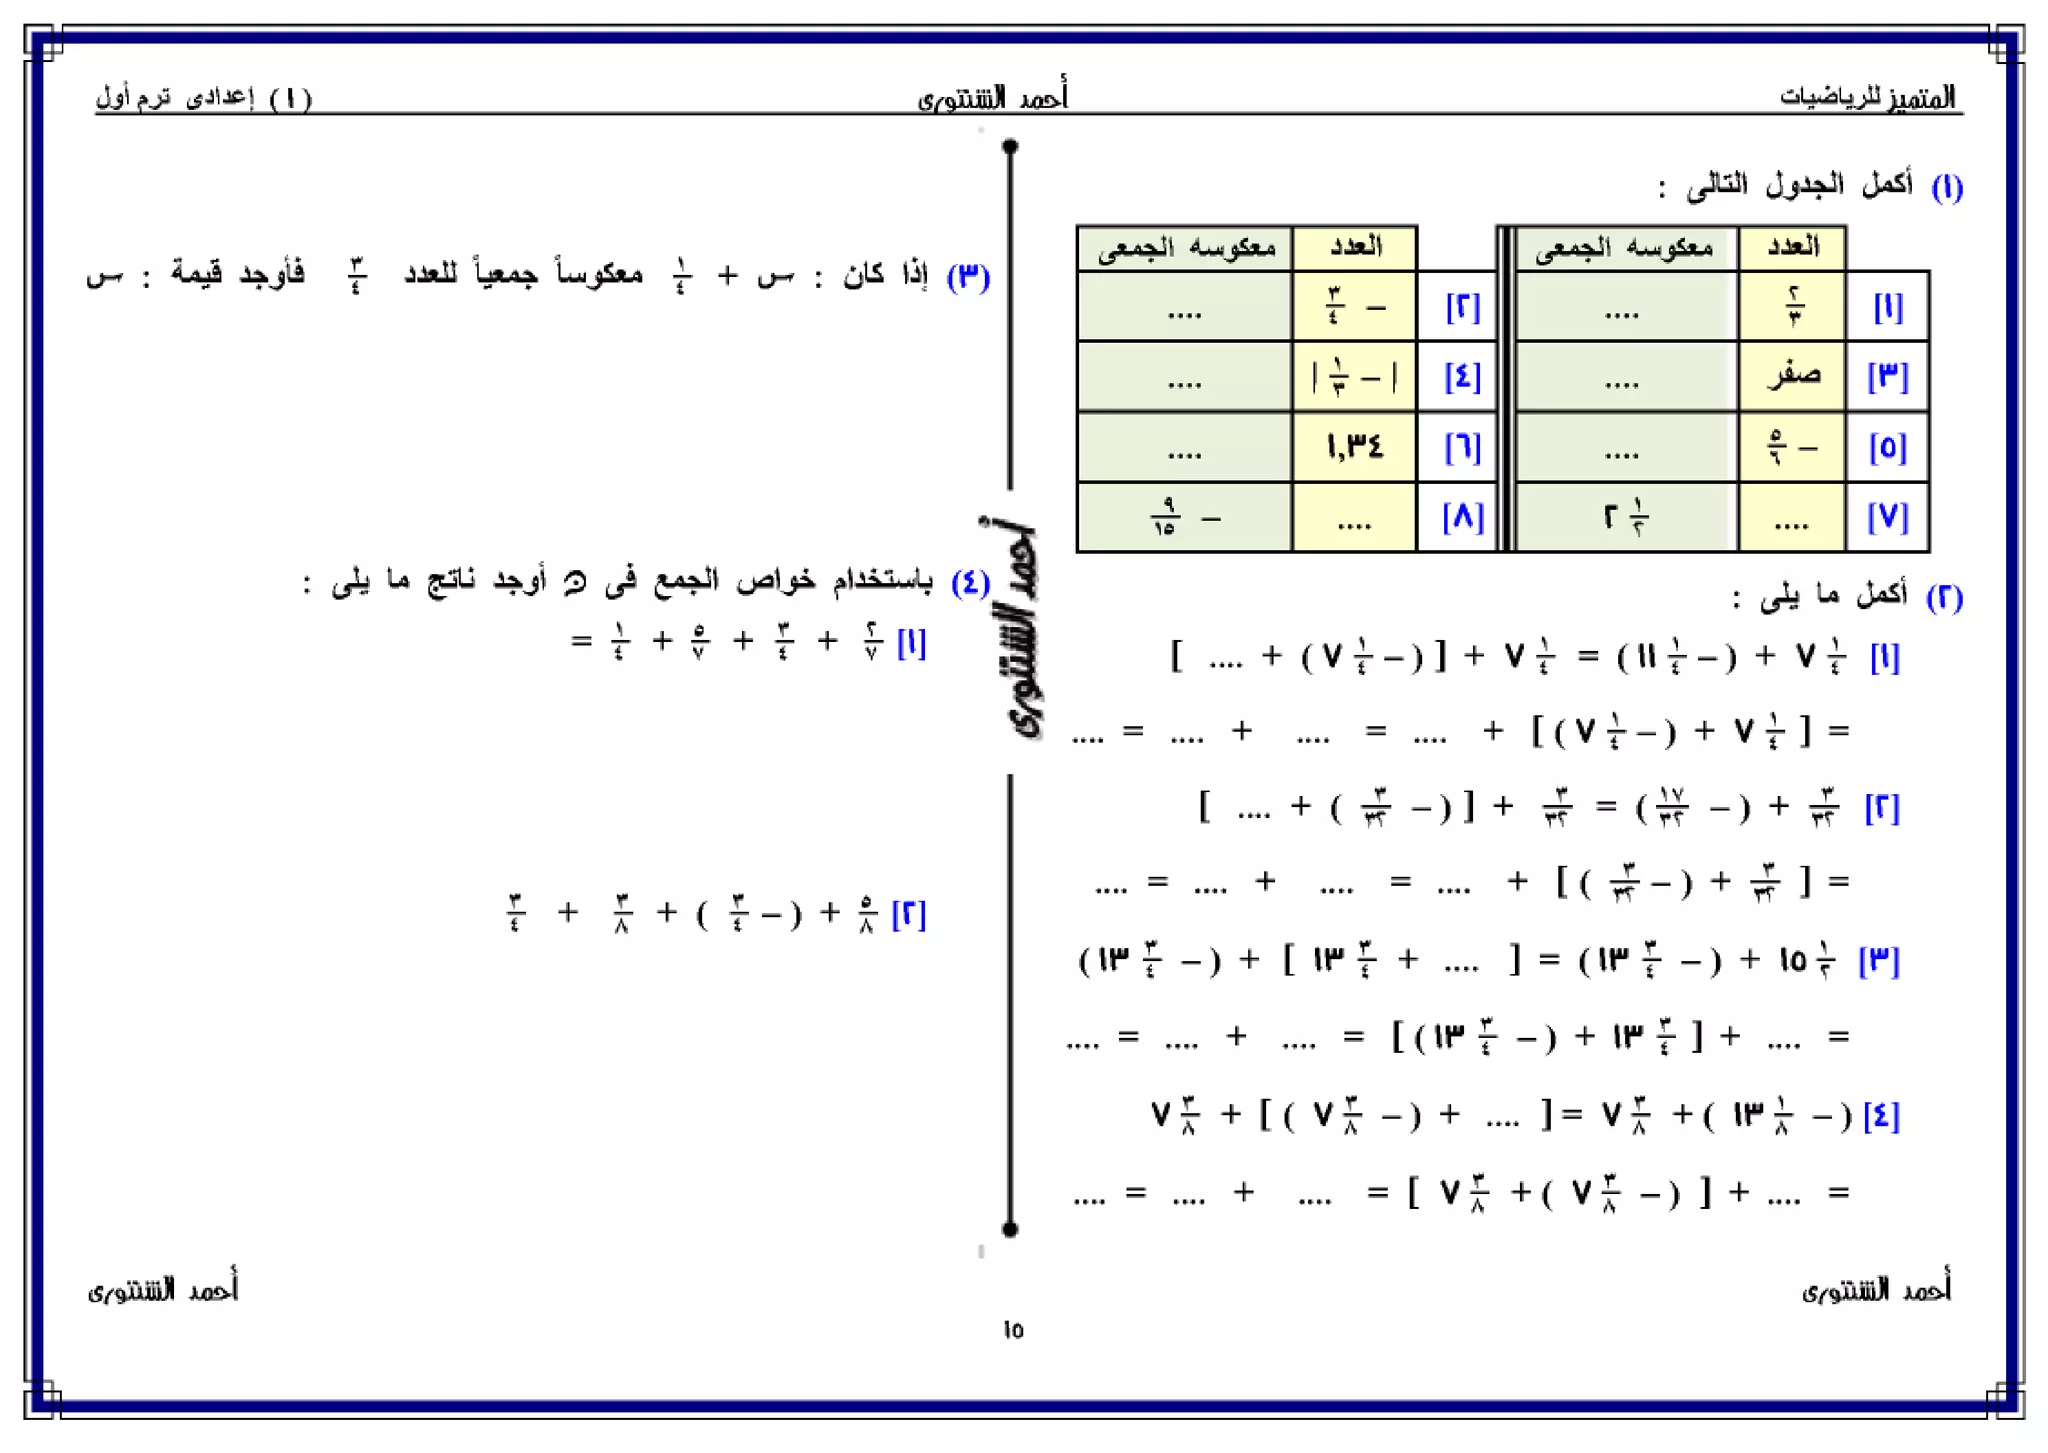 المتميز للرياضيات
أحمد الشنتورى
(١) إعدادى ترم أول
(١) أكمل الجدول التالى :
العدد | معكوسه الجمعى | العدد | معكوسه الجمعى
[١] ٢/٣ | .... | [٢] – ٣/٤ | ....
[٣] صفر | .... | [٤] | – ١/٣ | | ....
[٥] – ٥/٦ | .... | [٦] ١,٣٤ | ....
[٧] .... | ٢ ١/٢ | [٨] .... | – ٩/١٥
(٢) أكمل ما يلى :
[١] ٧ ١/٤ + ( – ١١ ١/٤ ) = ٧ ١/٤ + [ ( – ٧ ١/٤ ) + .... ]
= [ ٧ ١/٤ + ( – ٧ ١/٤ ) ] + .... = .... + .... = ....
[٢] ٣/٢٢ + ( – ١٧/٢٢ ) = ٣/٢٢ + [ ( – ٣/٢٢ ) + .... ]
= [ ٣/٢٢ + ( – ٣/٢٢ ) ] + .... = .... + .... = ....
[٣] ١٥ ١/٢ + ( – ١٣ ٣/٤ ) = [ .... + ١٣ ٣/٤ ] + ( – ١٣ ٣/٤ )
= .... + [ ١٣ ٣/٤ + ( – ١٣ ٣/٤ ) ] = .... + .... = ....
[٤] ( – ١٣ ١/٨ ) + ٧ ٣/٨ = [ .... + ( – ٧ ٣/٨ ) ] + ٧ ٣/٨
= .... + [ ( – ٧ ٣/٨ ) + ٧ ٣/٨ ] = .... + .... = ....
أحمد الشنتورى
(٣) إذا كان : س + ١/٤ معكوساً جمعياً للعدد ٣/٤ فأوجد قيمة : س
(٤) باستخدام خواص الجمع فى ن أوجد ناتج ما يلى :
[١] ٢/٧ + ٣/٤ + ٥/٧ + ١/٤ =
[٢] ٥/٨ + ( – ٣/٤ ) + ٣/٨ + ٣/٤
أحمد الشنتورى
أحمد الشنتورى
١٥